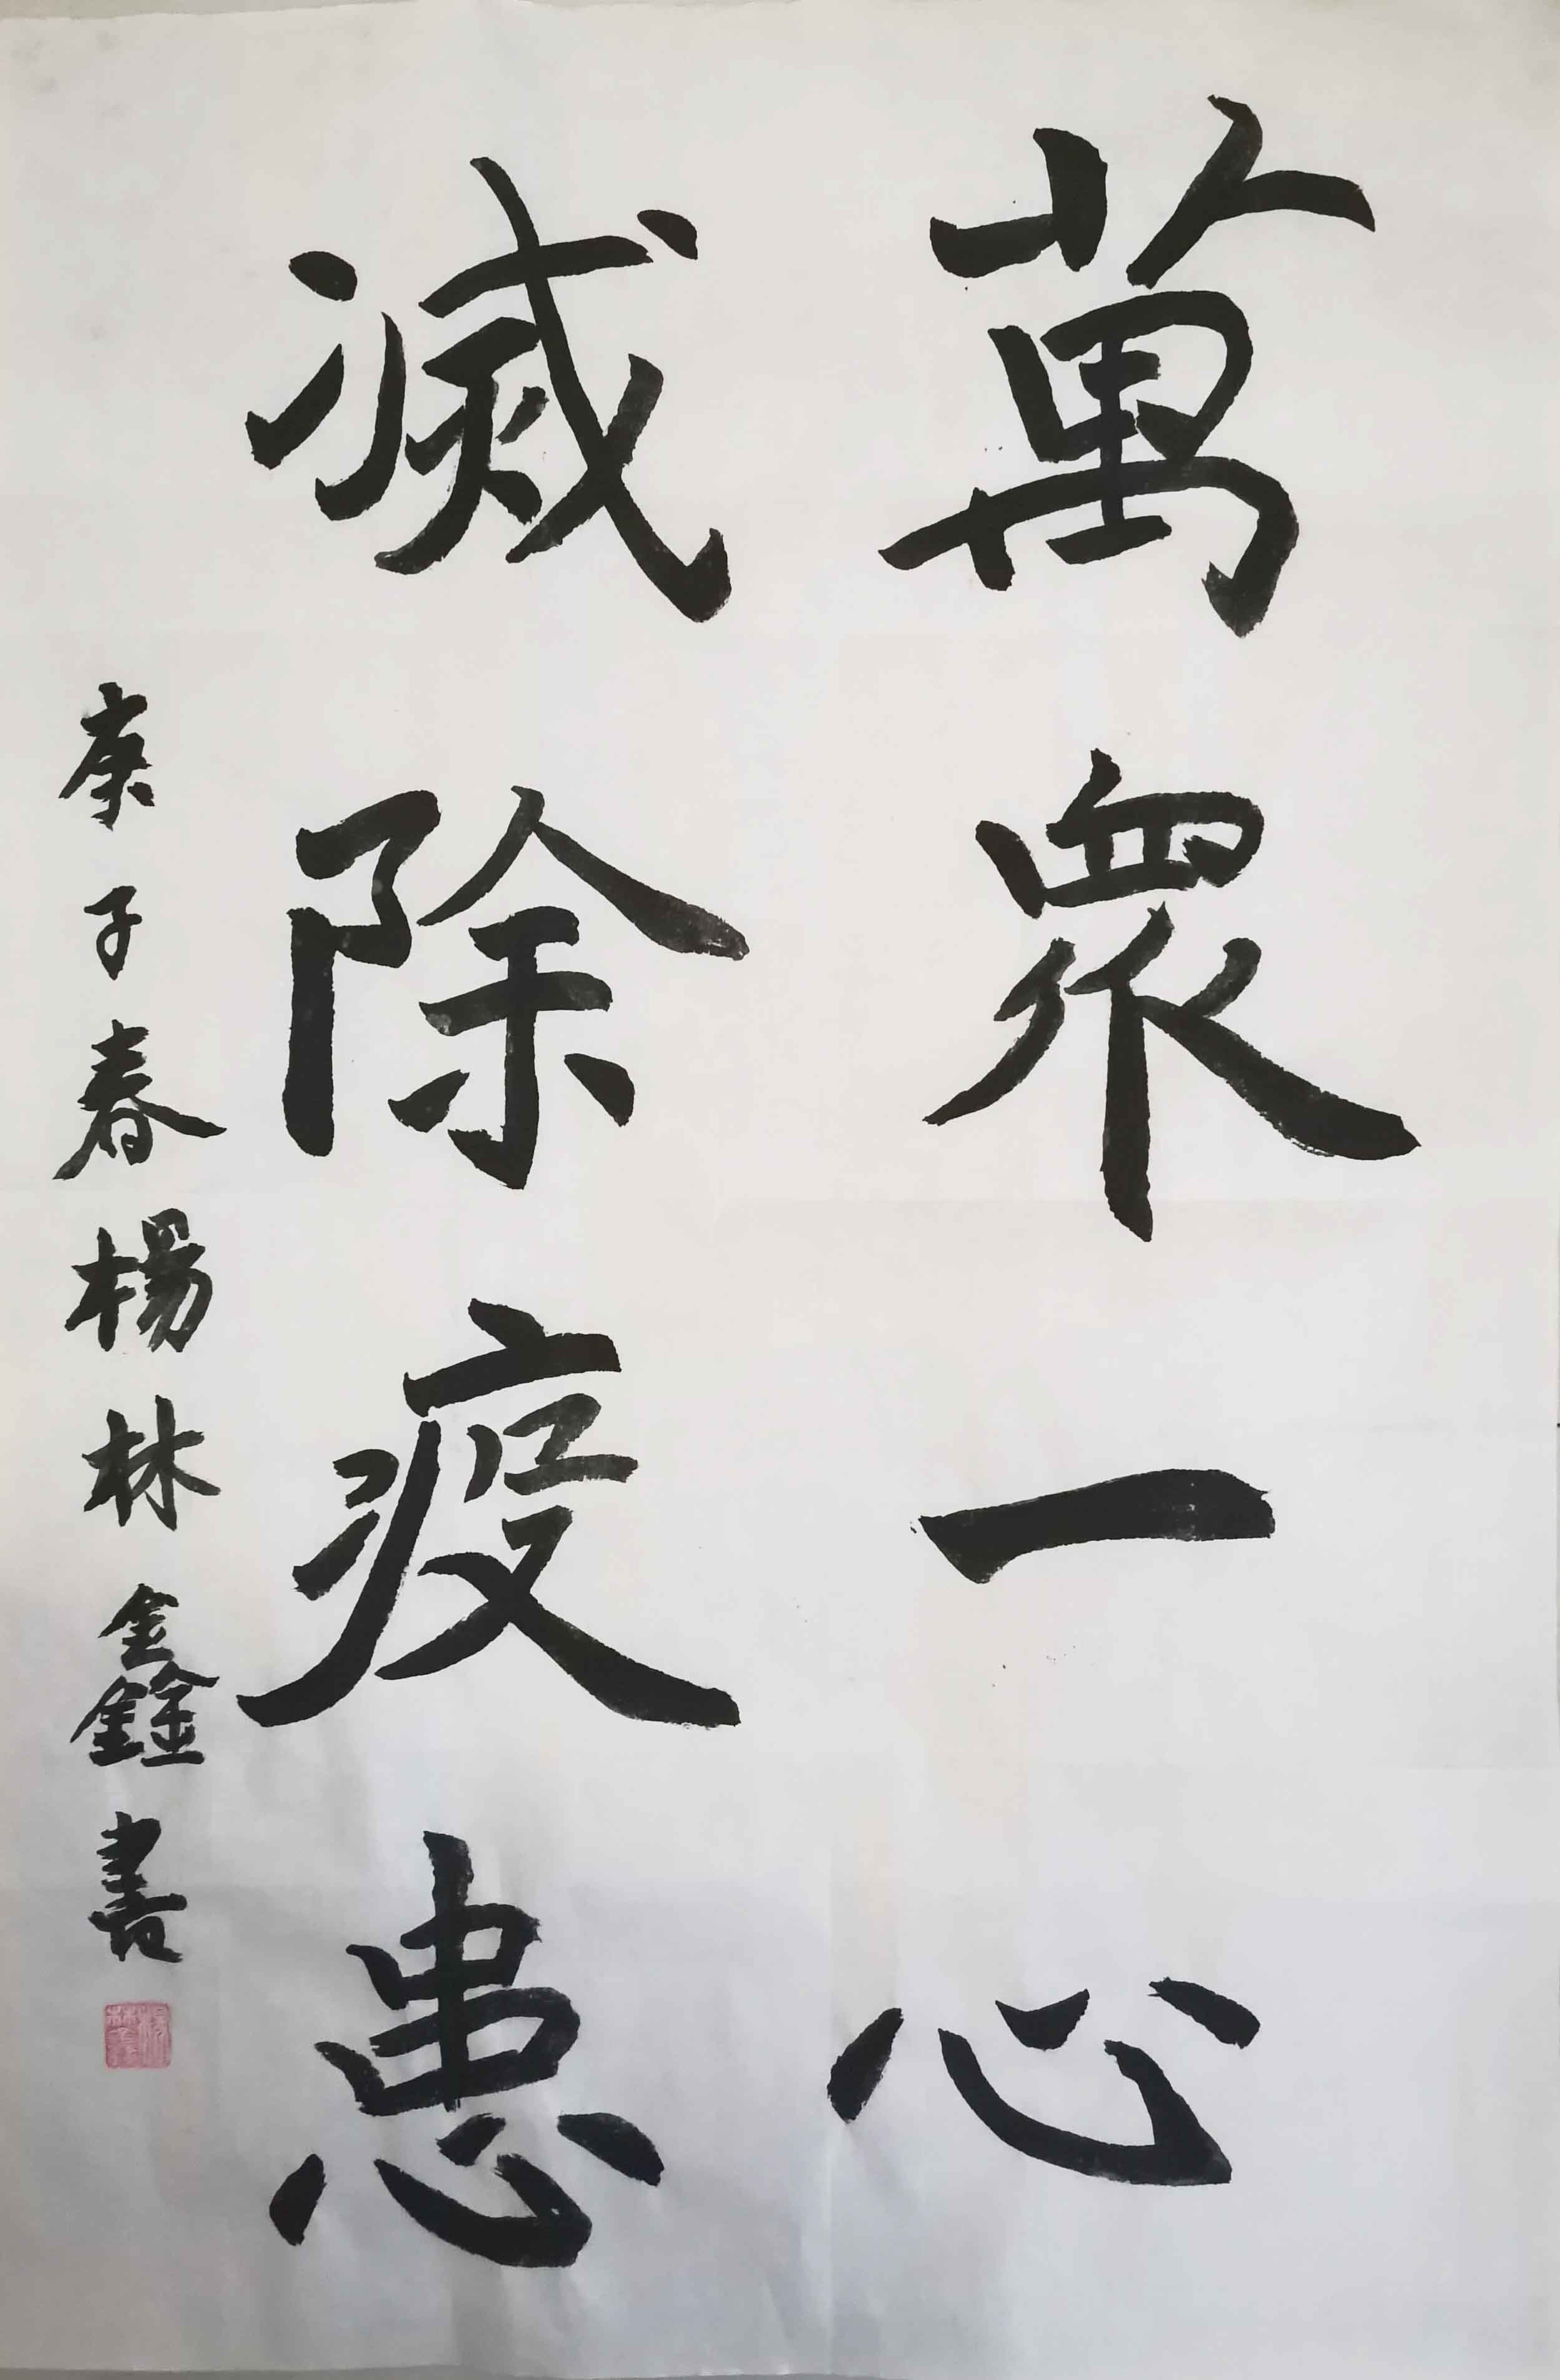 萬眾一心
滅除疫患
庚子春楊林鑫書